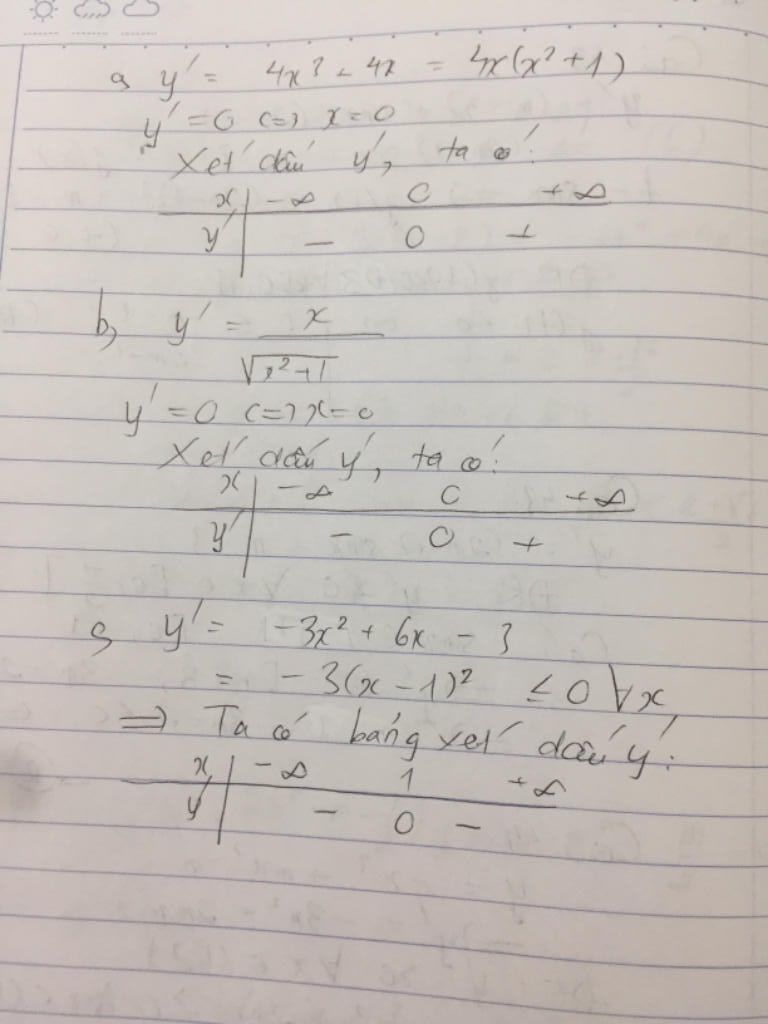 a, y' = 4x³ - 4x = 4x(x² + 1)
y' = 0 <=> x = 0
Xét dấu y', ta có:
x | -∞ 0 + ∞
y' | - 0 +
b, y' = x / √(x² + 1)
y' = 0 <=> x = 0
Xét dấu y', ta có:
x | -∞ 0 + ∞
y' | - 0 +
c, y' = -3x² + 6x - 3
= -3(x - 1)² ≤ 0 ∀x
=> Ta có bảng xét dấu y':
x | -∞ 1 + ∞
y' | - 0 -